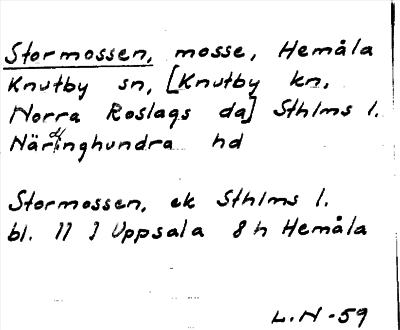 Stormossen, mosse, Hemåla
Knutby sn, [Knutby kn,
Norra Roslags da] Sthlms l.
Närdinghundra hd
Stormossen, ek Sthlms l.
bl. 11 J Uppsala 8 h Hemåla
L.N-59